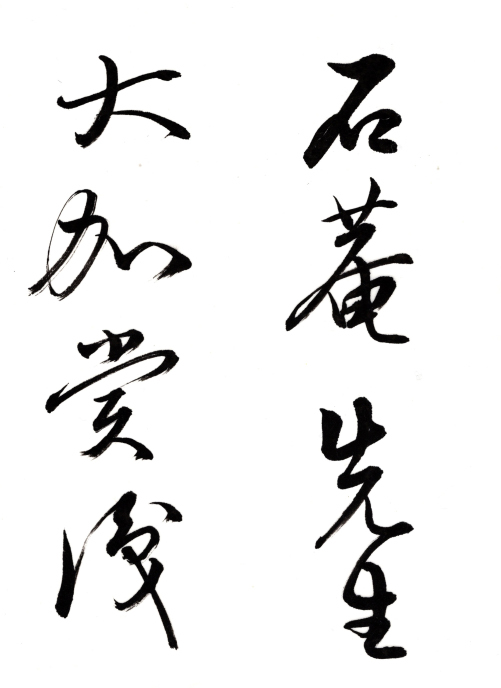 石菴先生
大加赏识